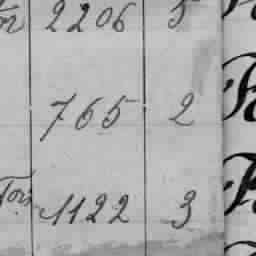 2206 5
765 2
1122 3